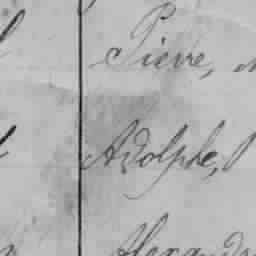 Pierre,
Adolphe,
Alexandre